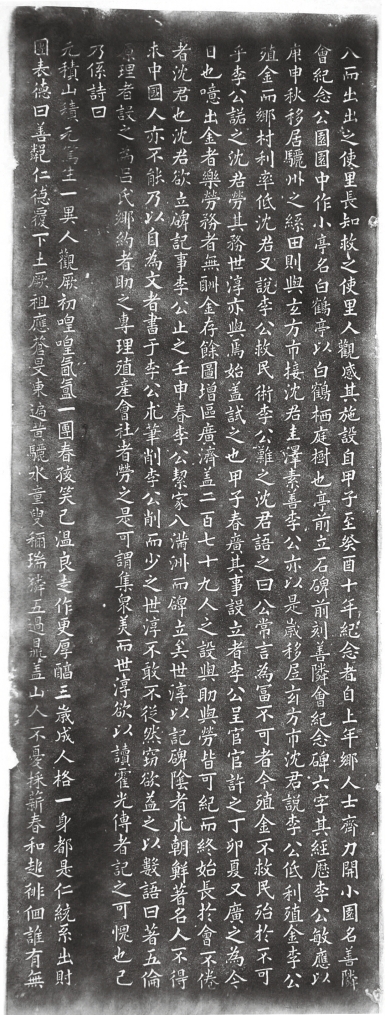 入而出出之使里長知救之使里人觀感其施設自甲子至癸酉十年紀念者自上年鄉人士齊力開小園名善隣
會紀念公園園中作小亭名白鶴亭以白鶴栖庭樹也亭前立石碑前刻善隣會紀念碑六字其經歷李公敏應以
庚申秋移居驪州之絲田則與玄方市接沈君圭澤素善李公亦以是歲移居玄方市沈君說李公低利殖金李公
殖金而鄉村利率低沈君又說李公救民術李公難之沈君語之曰公常言為富不可者今殖金不救民殆於不可
乎李公諾之沈君勞其務世淳亦與焉始蓋試之也甲子春廣其事設立者李公呈官官許之丁卯夏又廣之為今
日也噫出金者樂勞務者無酬金存餘圖增區廣濟蓋二百七十九人之設與助與勞皆可紀而終始長於會不倦
者沈君也沈君欲立碑記事李公止之壬申春李公絜家入滿洲而碑立矣世淳以記碑陰者朮朝鮮著名人不得
朮中國人亦不能乃以自為文者書于李公朮筆削李公削而少之世淳不敢不從然窃欲益之以數語曰著五倫
原理者設之為呂氏鄉約者助之專理殖產會社者勞之是可謂集衆美而世淳欲以讀霍光傳者記之可愧也已
乃係詩曰
元積山積元篤生一異人觀厥初喤喤氤氳一團春孩笑已温良走作更厚醕三歲成人格一身都是仁統系出財
團表德曰善說仁德覆下土厥祖應蒼旻東遍黃驪水童叟稱瑞獜五過鼎蓋山人不憂採薪春和起徘佪誰有無